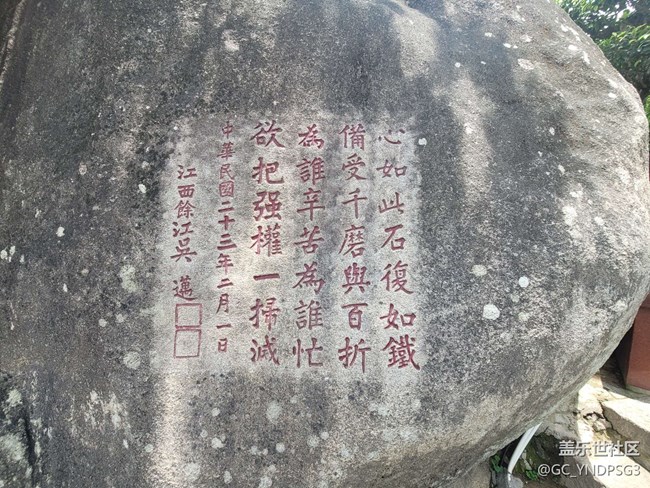 心如此石復如鐵
備受千磨與百折
為誰辛苦為誰忙
欲把强權一掃滅
中華民國二十三年二月一日
江西餘江吳邁
盖乐世社区
@GC_YNDPSG3